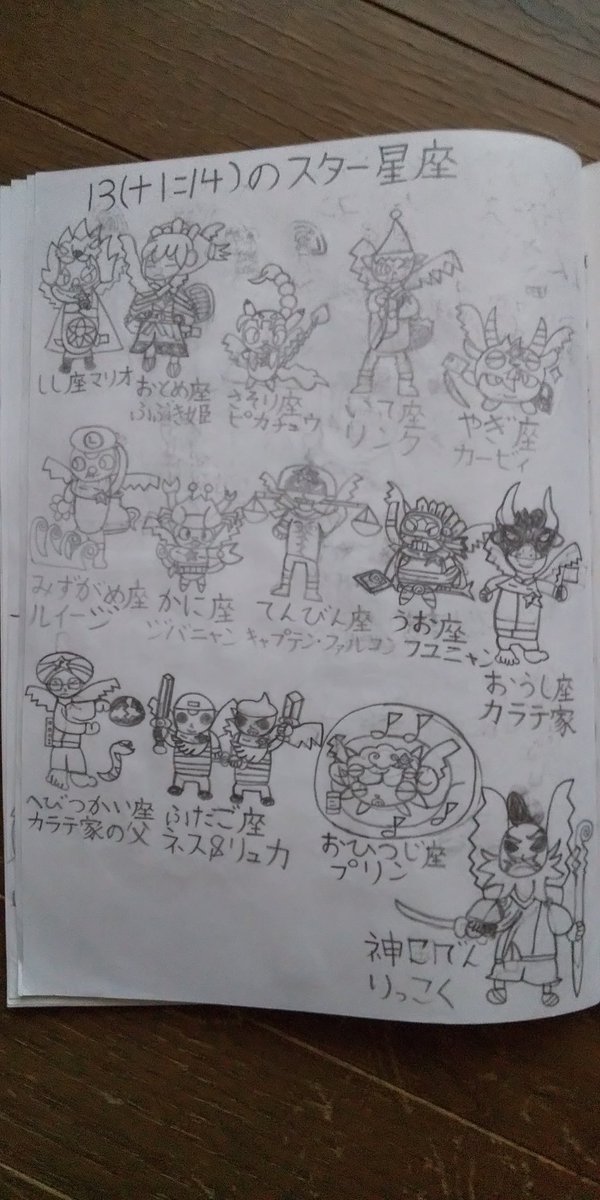 13(+1=14)のスター星座
しし座マリオ
おとめ座
ふぶき姫
さそり座
ピカチュウ
いて座
リンク
やぎ座
カービィ
みずがめ座
ルイージ
かに座
ジバニャン
てんびん座
キャプテン・ファルコン
うお座
フユニャン
おうし座
カラテ家
へびつかい座
カラテ家の父
ふたご座
ネス&リュカ
おひつじ座
プリン
りっこく